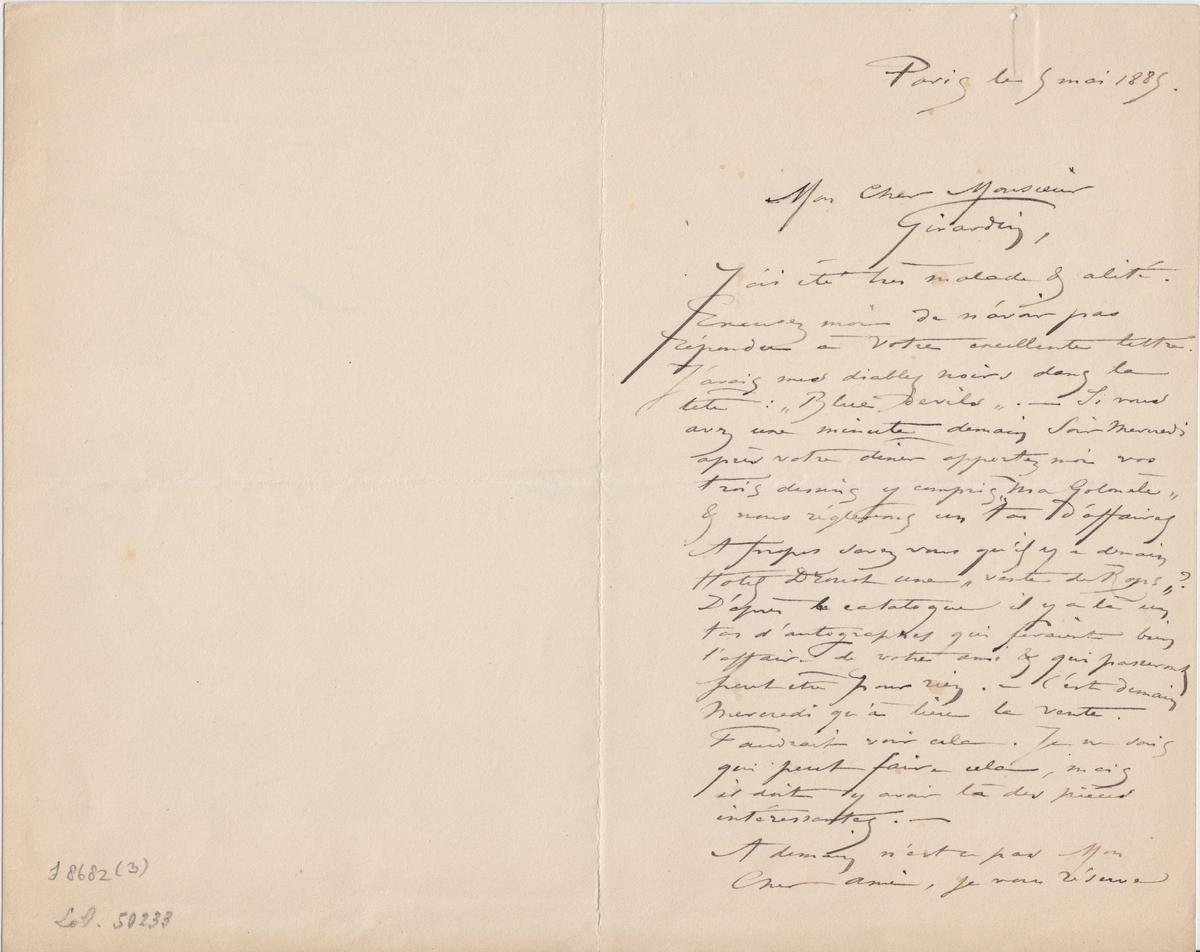 Paris le 5 mai 1885.
Mon Cher Monsieur
Girardin,
J'ais été très malade & alité.
Excusez moi de n'avoir pas
répondu à votre excellente lettre.
J'avais mes diables noirs dans la
tête : „Blue Devils„. — Si vous
avez une minute demain Soir Mercredi
après votre diner apportez moi vos
trois dessins y compris „Ma Colonelle„
& nous réglerons un tas d'affaires
A propos savez vous qu'il y a demain
Hotel Drouot une „vente de Rops„?
D'après le catalogue il y a là un
tas d'autographes qui feraient bien
l'affaire de votre ami & qui passeront
peut être pour rien. — C'est demain
Mercredi qu'à lieu la vente.
Faudrait voir cela. Je ne sais
qui peut faire cela, mais
il doit y avoir là des pièces
intéressantes. —
A demain n'est ce pas Mon
Cher ami, je vous réserve
J 8682 (3)
LoD. 50233